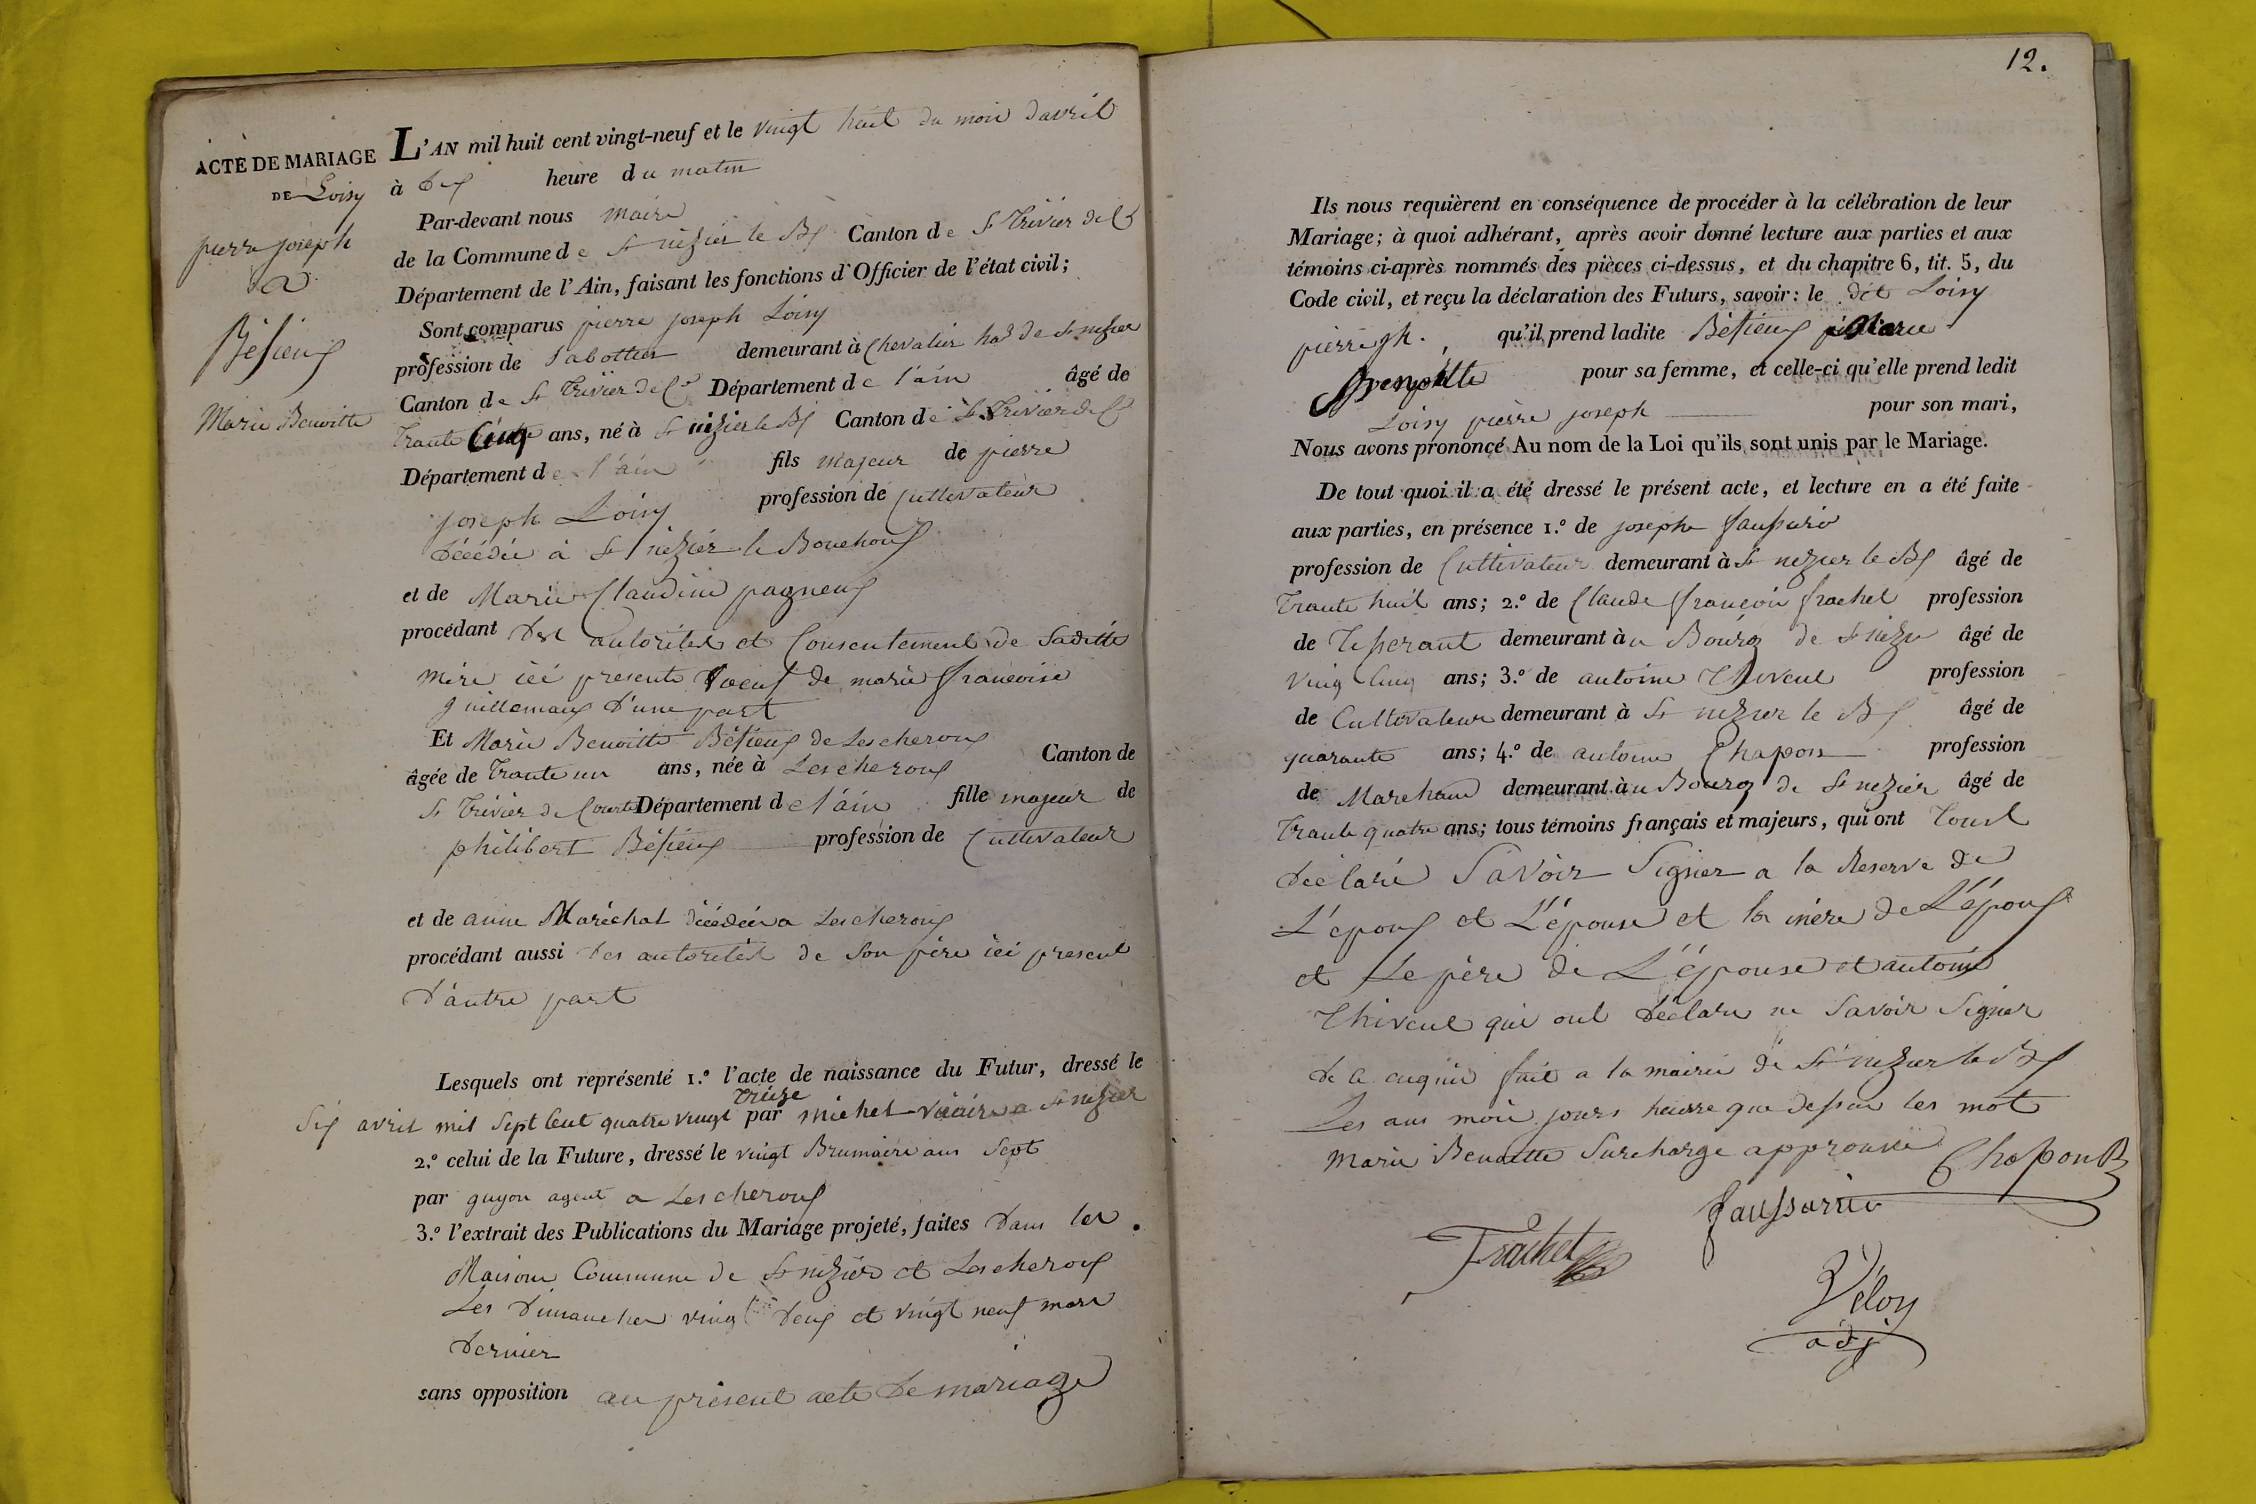 ACTE DE MARIAGE
DE Loisy
pierre joseph
&
Bésieux
Marie Benoitte
L'AN mil huit cent vingt-neuf et le vingt huit du mois davril
à dix heure du matin
Par-devant nous maire
de la Commune de St nizier le Bx Canton de St Trivier de Ct
Département de l'Ain, faisant les fonctions d'Officier de l'état civil;
Sont comparus pierre joseph Loisy
profession de Sabottier demeurant à Chevalier hau de St nizier
Canton de St Trivier de Ct Département de l'ain âgé de
Trante Cinq ans, né à St nizier le Bx Canton de St Trivier de Ct
Département de l'ain fils majeur de pierre
joseph Loisy profession de Cultivateur
décédée à St nizier le Bouchoux
et de Marie Claudine pagneux
procédant des autorités et Consentement de Saditte
mère ici presente Voeuf de marie francoise
guillemaux d'une part
Et Marie Benoitte Bésieux de Lescheroux
âgée de Trante un ans, née à Lescheroux Canton de
St Trivier de Courte Département de l'ain fille majeur de
philibert Bésieux profession de Cultivateur
et de anne Maréchal décédée a Lescheroux
procédant aussi des autorités de Son père ici present
d'autre part
Lesquels ont représenté 1.º l'acte de naissance du Futur, dressé le
treize
Six avril mil Sept Cent quatre vingt par michel vicaire a St nizier
2.º celui de la Future, dressé le vingt Brumaire ans Sept
par guyon agent a Lescheroux
3.º l'extrait des Publications du Mariage projeté, faites dans les
Maisons Commune de St nizier et Lescheroux
Les dimanches vingt deux et vingt neuf mars
dernier
sans opposition au présent acte de mariage
12.
Ils nous requièrent en conséquence de procéder à la célébration de leur
Mariage; à quoi adhérant, après avoir donné lecture aux parties et aux
témoins ci-après nommés des pièces ci-dessus, et du chapitre 6, tit. 5, du
Code civil, et reçu la déclaration des Futurs, savoir: le dit Loisy
pierre jh. qu'il prend ladite Bésieux Marie
Benoitte pour sa femme, et celle-ci qu'elle prend ledit
Loisy pierre joseph pour son mari,
Nous avons prononcé Au nom de la Loi qu'ils sont unis par le Mariage.
De tout quoi il a été dressé le présent acte, et lecture en a été faite
aux parties, en présence 1.º de joseph faussurier
profession de Cultivateur demeurant à St nizier le Bx âgé de
Trante huit ans; 2.º de Claude francois frachet profession
de Tisserant demeurant àu Bourg de St nizier âgé de
vingt Cinq ans; 3.º de antoine Thivent profession
de Cultivateur demeurant à St nizier le Bx âgé de
quarante ans; 4.º de antoine Chapon profession
de Marchand demeurant àu Bourg de St nizier âgé de
Trante quatre ans; tous témoins français et majeurs, qui ont Tous
déclaré Savoir Signer a la Reserve de
L'époux et L'épouse et la mère de L'époux
et Le père de L'épouse et antoine
Thivent qui ont déclare ne Savoir Signer
de ce enquis fait a la mairie de St nizier le Bx
Les ans mois jours heure que dessus les mot
Marie Benoitte Surcharge approuvé
Chapon
faussurier
Frachet
Véloy
adj